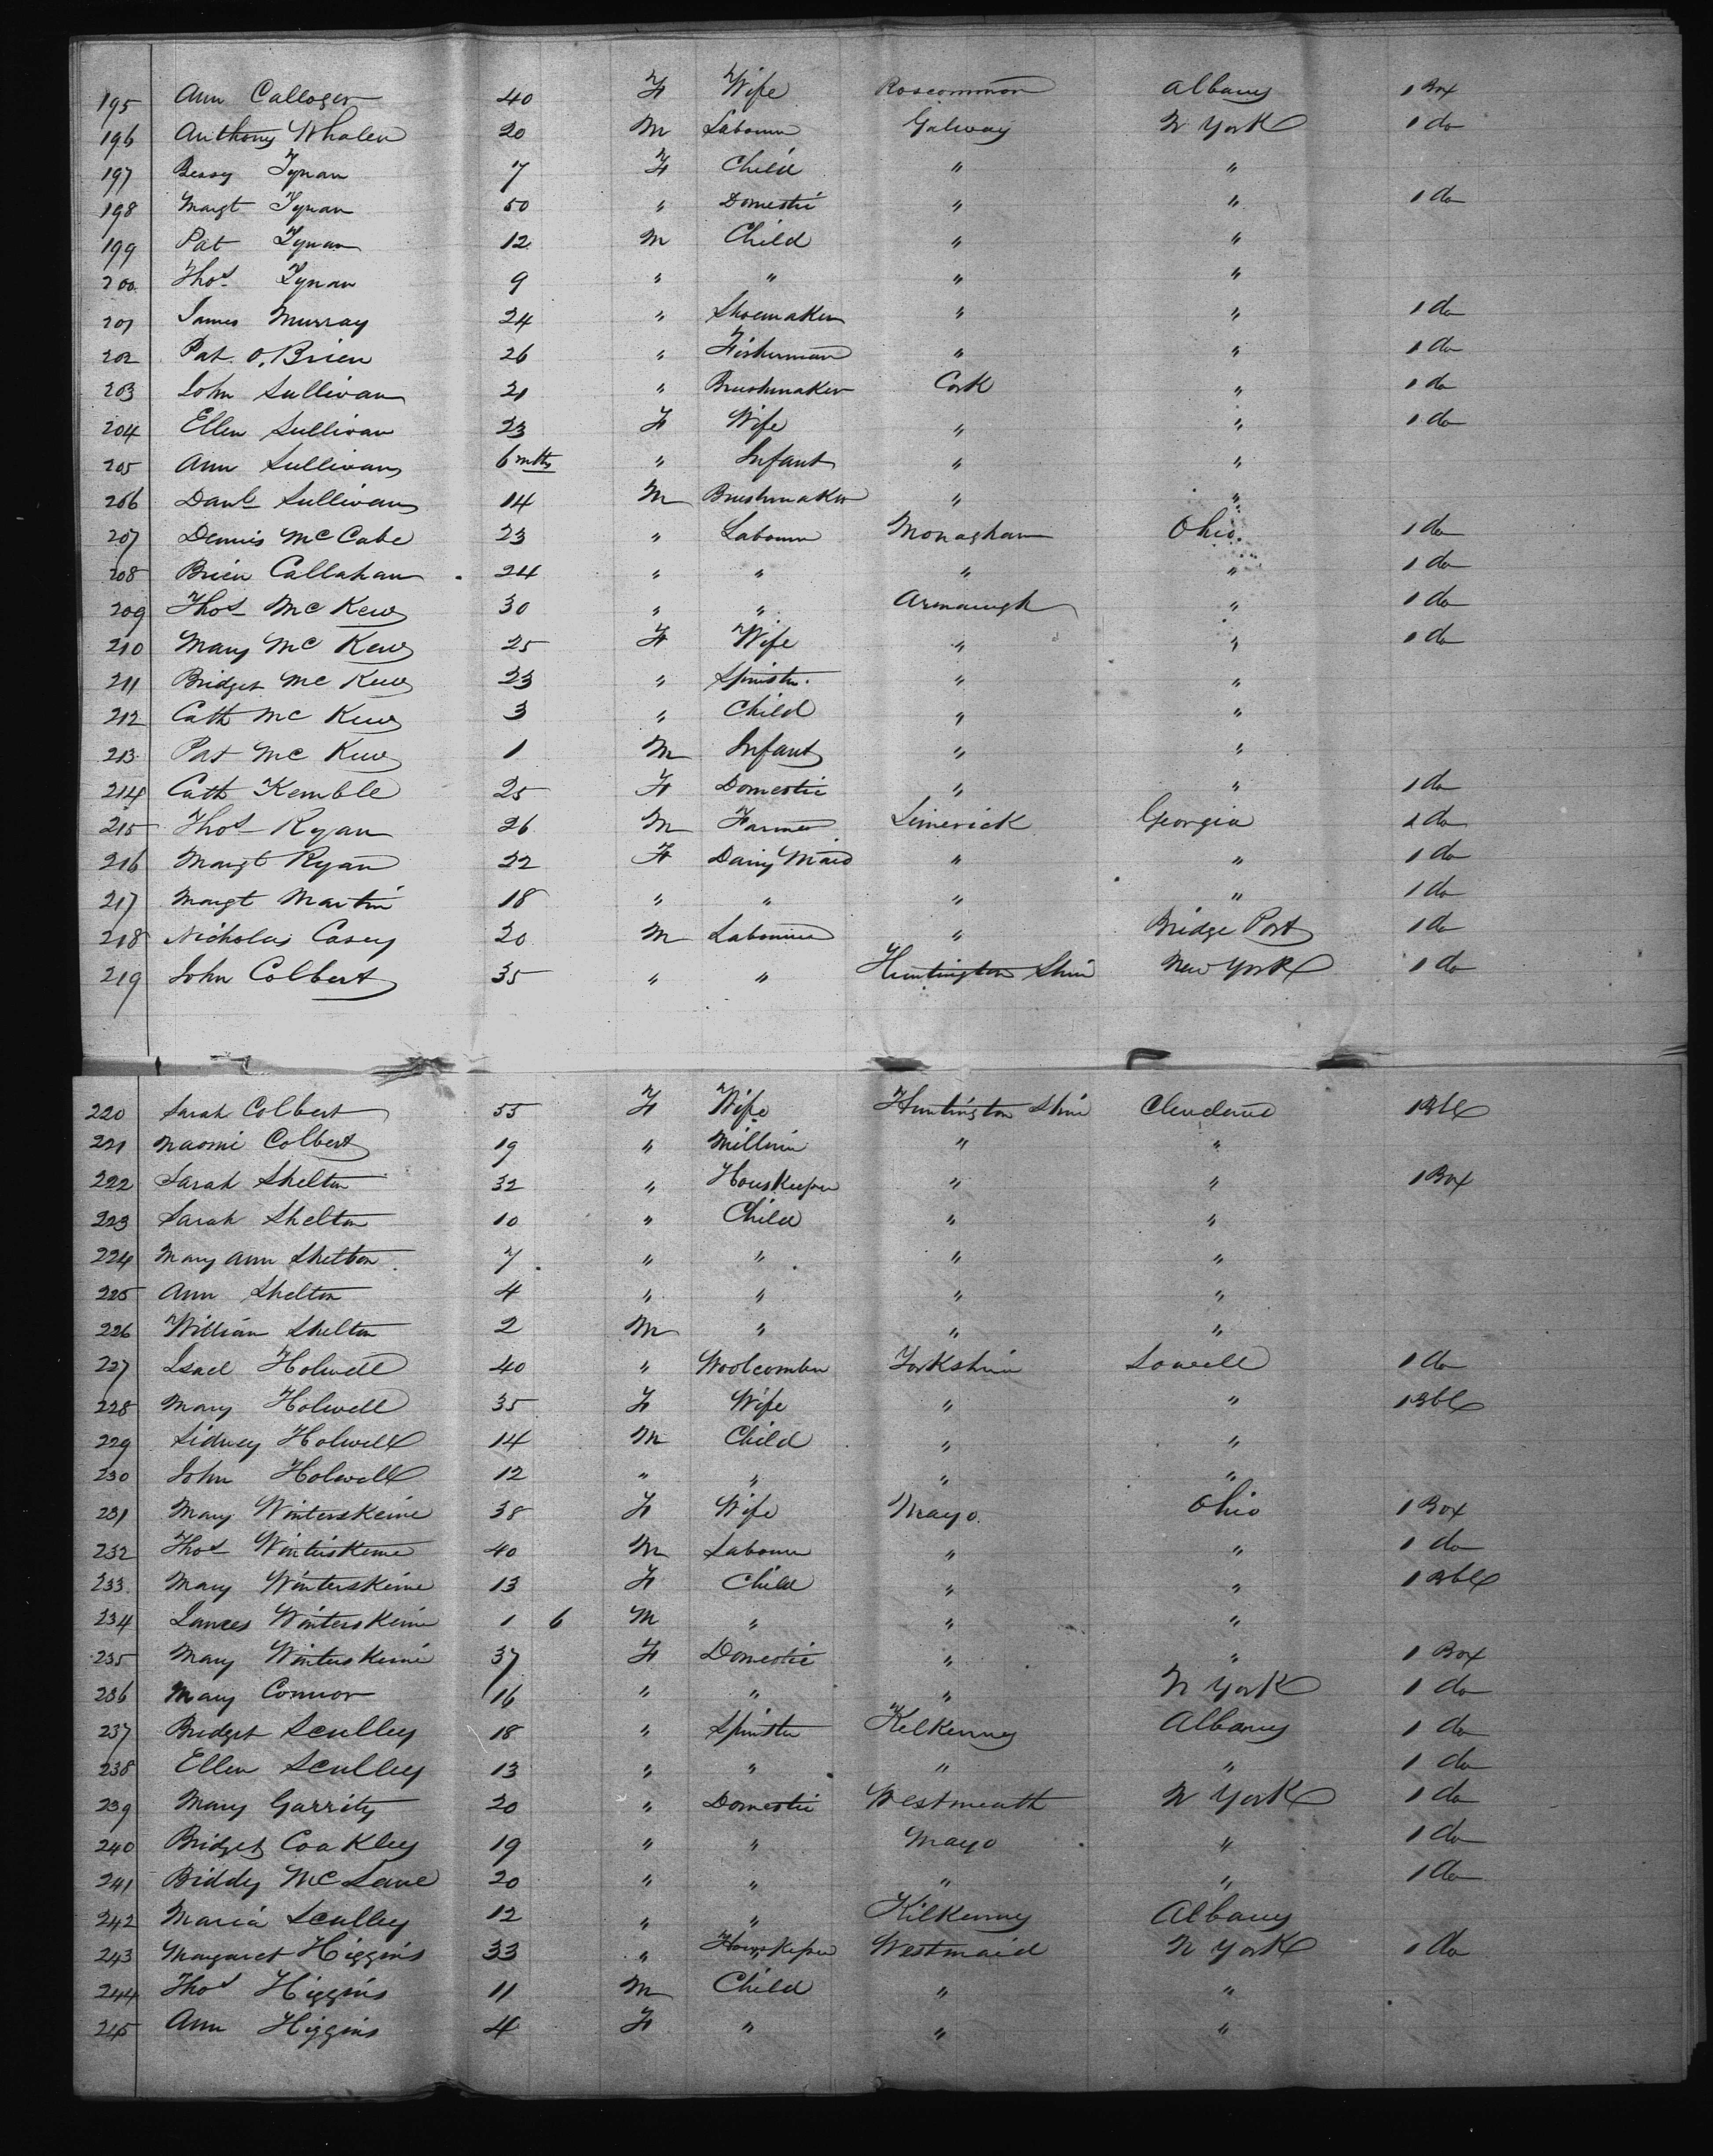 195 Ann Calloger 40 F Wife Roscommon Albany 1 Box
196 Anthony Whalen 20 M Labourer Galway N York 1 do
197 Bessy Tynan 7 F Child " "
198 Margt Tynan 50 " Domestic " " 1 do
199 Pat Tynan 12 M Child " "
200 Thos Tynan 9 " " " "
201 James Murray 24 " Shoemaker " " 1 do
202 Pat O'Brien 26 " Fisherman " " 1 do
203 John Sullivan 21 " Brushmaker Cork " 1 do
204 Ellen Sullivan 23 F Wife " " 1 do
205 Ann Sullivan 6 mths " Infant " "
206 Danl Sullivan 14 M Brushmaker " "
207 Dennis McCabe 23 " Labourer Monaghan Ohio 1 do
208 Brien Callahan 24 " " " " 1 do
209 Thos McKew 30 " " Armaugh " 1 do
210 Mary McKew 25 F Wife " " 1 do
211 Bridget McKew 23 " Spinster " "
212 Cath McKew 3 " Child " "
213 Pat McKew 1 M Infant " "
214 Cath Kemble 25 F Domestic " " 1 do
215 Thos Ryan 26 M Farmer Limerick Georgia 1 do
216 Margt Ryan 22 F Dairy Maid " " 1 do
217 Margt Martin 18 " " " " 1 do
218 Nicholas Casey 20 M Labourer " Bridge Port 1 do
219 John Colbert 35 " " Huntington Shire New York 1 do
220 Sarah Colbert 55 F Wife Huntington Shire Cleveland 1 Bbl
221 Naomi Colbert 19 " Milliner " "
222 Sarah Shelton 32 " Houskeeper " " 1 Box
223 Sarah Shelton 10 " Child " "
224 Mary Ann Shelton 7 " " " "
225 Ann Shelton 4 " " " "
226 William Shelton 2 M " " "
227 Isael Holwell 40 " Woolcomber Yorkshire Lowell 1 do
228 Mary Holwell 35 F Wife " " 1 Bbl
229 Sidney Holwell 14 M Child " "
230 John Holwell 12 " " " "
231 Mary Winterskeine 38 F Wife Mayo Ohio 1 Box
232 Thos Winterskeine 40 M Labourer " " 1 do
233 Mary Winterskeine 13 F Child " " 1 Bbl
234 James Winterskeine 1 6 M " " "
235 Mary Winterskeine 37 F Domestic " " 1 Box
236 Mary Connor 16 " " " N York 1 do
237 Bridget Sculley 18 " Spinster Kelkenny Albany 1 do
238 Ellen Sculley 13 " " " " 1 do
239 Mary Garrity 20 " Domestic Westmeath N York 1 do
240 Bridget Coakley 19 " " Mayo " 1 do
241 Biddy McLane 20 " " " " 1 do
242 Maria Sculley 12 " " Kilkenny Albany
243 Margaret Higgins 33 " Houskeeper Westmaid N York 1 do
244 Thos Higgins 11 M Child " "
245 Ann Higgins 4 F " " "